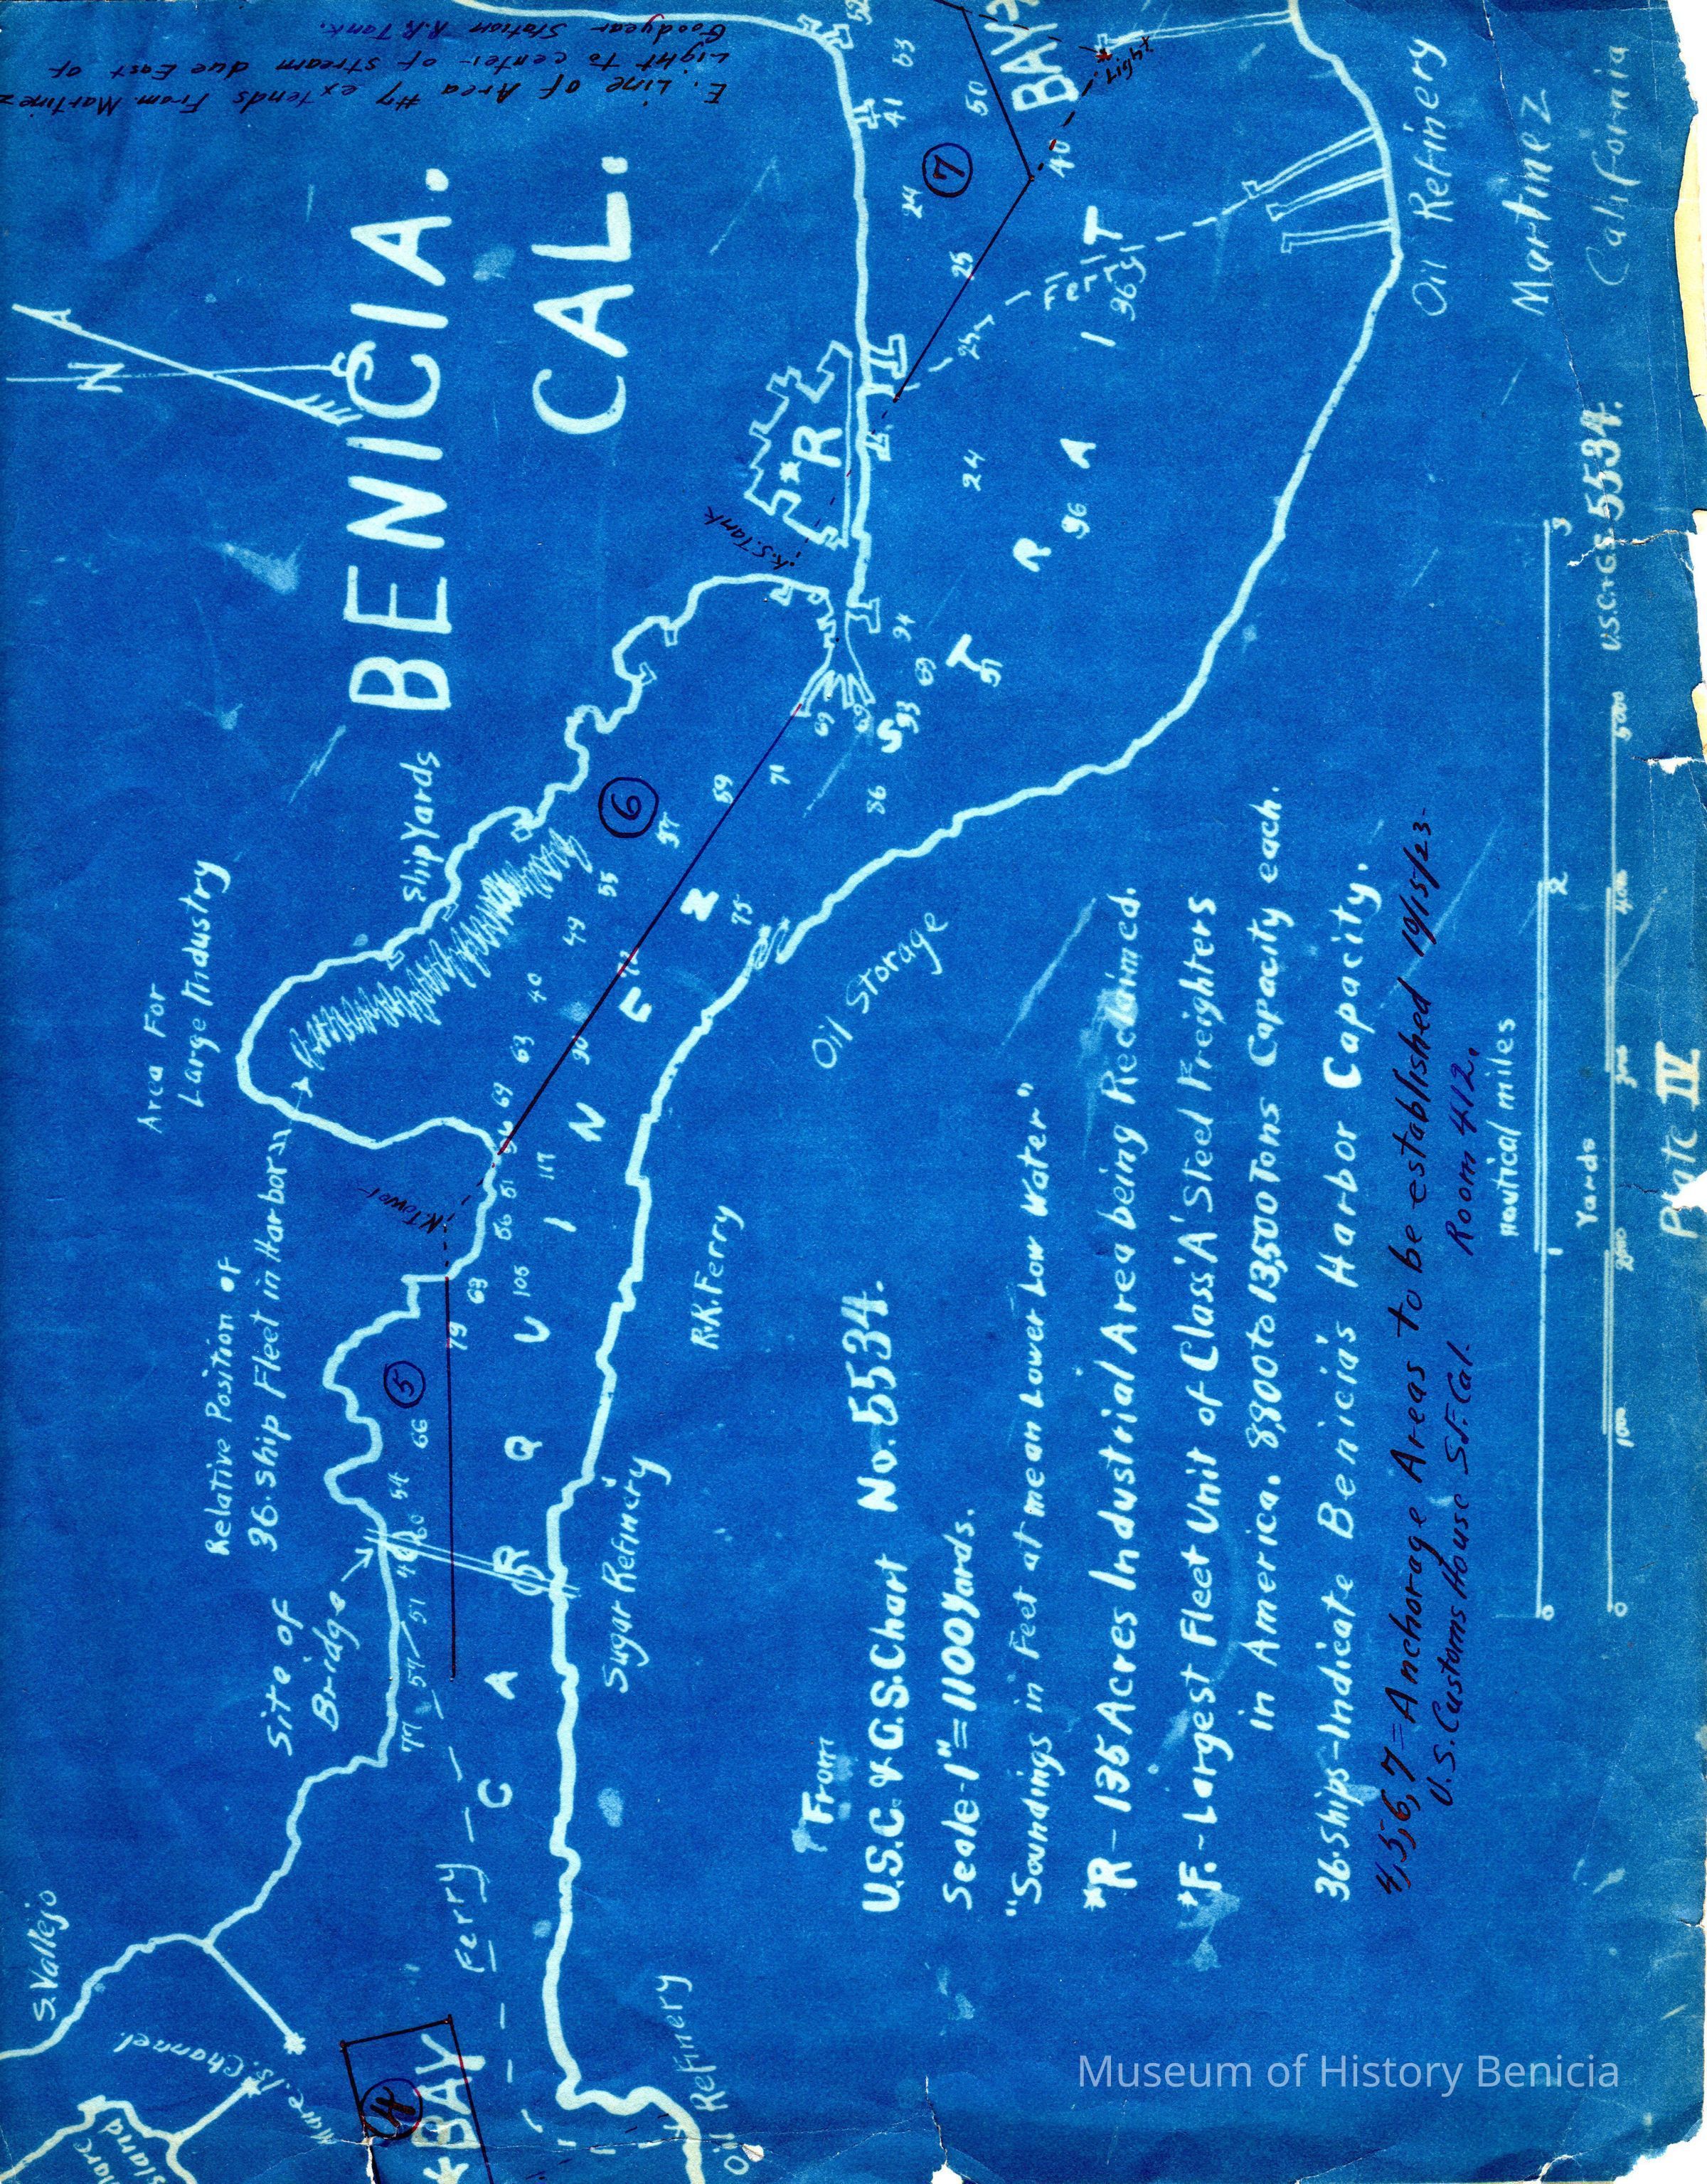 E. Line of Area #7 extends From Martinez
Light to center of stream due East of
Goodyear Station R.R. Tank.
N
BENICIA.
CAL.
Area For
Large Industry
Ship Yards
Relative Position of
36-Ship Fleet in Harbor
Site of
Bridge
S. Vallejo
Mare Is. Channel
Mare
Island
4
*BAY
Ferry
5
6
7
N. Tower
K.S. Tank
*R
CARQUINEZ
STRAIT
BAY
77
57
51
60
54
66
79
63
56
51
69
63
40
49
55
37
59
71
105
117
90
75
86
69
69
93
69
94
51
96
24
24
25
24
41
53
52
50
40
96
Oil Refinery
Sugar Refinery
R.R. Ferry
Oil Storage
Oil Refinery
Martinez
California
From
U.S.C. & G.S. Chart No. 5534.
Scale-1"=1100 Yards.
"Soundings in Feet at mean Lower Low Water"
*R-135 Acres Industrial Area being Reclaimed.
*F.-Largest Fleet Unit of Class 'A' Steel Freighters
in America. 8,800 to 13,500 Tons Capacity each.
36-Ships-Indicate Benicia's Harbor Capacity.
4,5,6,7=Anchorage Areas to be established 19/15/23-
U.S. Customs House S.F. Cal. Room 412.
nautical miles
0 1 2 3
Yards
0 1000 2000 3000 4000 5000
U.S.C.+G.S. 5534.
Plate IV
Museum of History Benicia